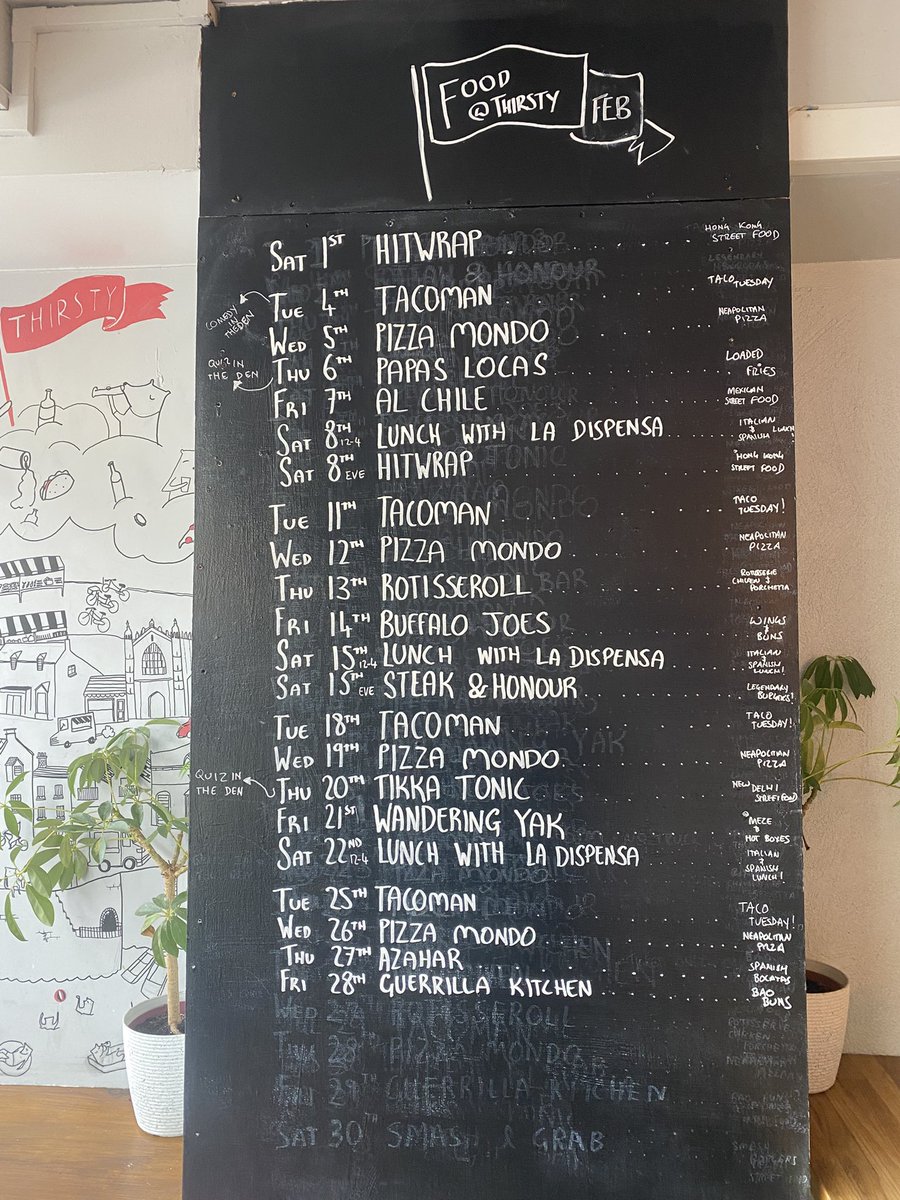 FOOD
@THIRSTY
FEB
THIRSTY
SAT 1ST HITWRAP HONG KONG STREET FOOD
COMEDY IN THE DEN
TUE 4TH TACOMAN TACO TUESDAY
WED 5TH PIZZA MONDO NEAPOLITAN PIZZA
QUIZ IN THE DEN
THU 6TH PAPAS LOCAS LOADED FRIES
FRI 7TH AL CHILE MEXICAN STREET FOOD
SAT 8TH 12-4 LUNCH WITH LA DISPENSA ITALIAN & SPANISH LUNCH!
SAT 8TH EVE HITWRAP HONG KONG STREET FOOD
TUE 11TH TACOMAN TACO TUESDAY!
WED 12TH PIZZA MONDO NEAPOLITAN PIZZA
THU 13TH ROTISSEROLL ROTISSERIE CHICKEN & PORCHETTA
FRI 14TH BUFFALO JOES WINGS & BUNS
SAT 15TH 12-4 LUNCH WITH LA DISPENSA ITALIAN & SPANISH LUNCH!
SAT 15TH EVE STEAK & HONOUR LEGENDARY BURGERS!
TUE 18TH TACOMAN TACO TUESDAY!
WED 19TH PIZZA MONDO NEAPOLITAN PIZZA
QUIZ IN THE DEN
THU 20TH TIKKA TONIC NEW DELHI STREET FOOD
FRI 21ST WANDERING YAK MEZE & HOT BOXES
SAT 22ND 12-4 LUNCH WITH LA DISPENSA ITALIAN & SPANISH LUNCH!
TUE 25TH TACOMAN TACO TUESDAY!
WED 26TH PIZZA MONDO NEAPOLITAN PIZZA
THU 27TH AZAHAR SPANISH BOCATAS
FRI 28TH GUERRILLA KITCHEN BAO BUNS
ROTISSEROLL
THU 28TH PIZZA MONDO
FRI 29TH GUERRILLA KITCHEN
SAT 30TH SMASH & GRAB